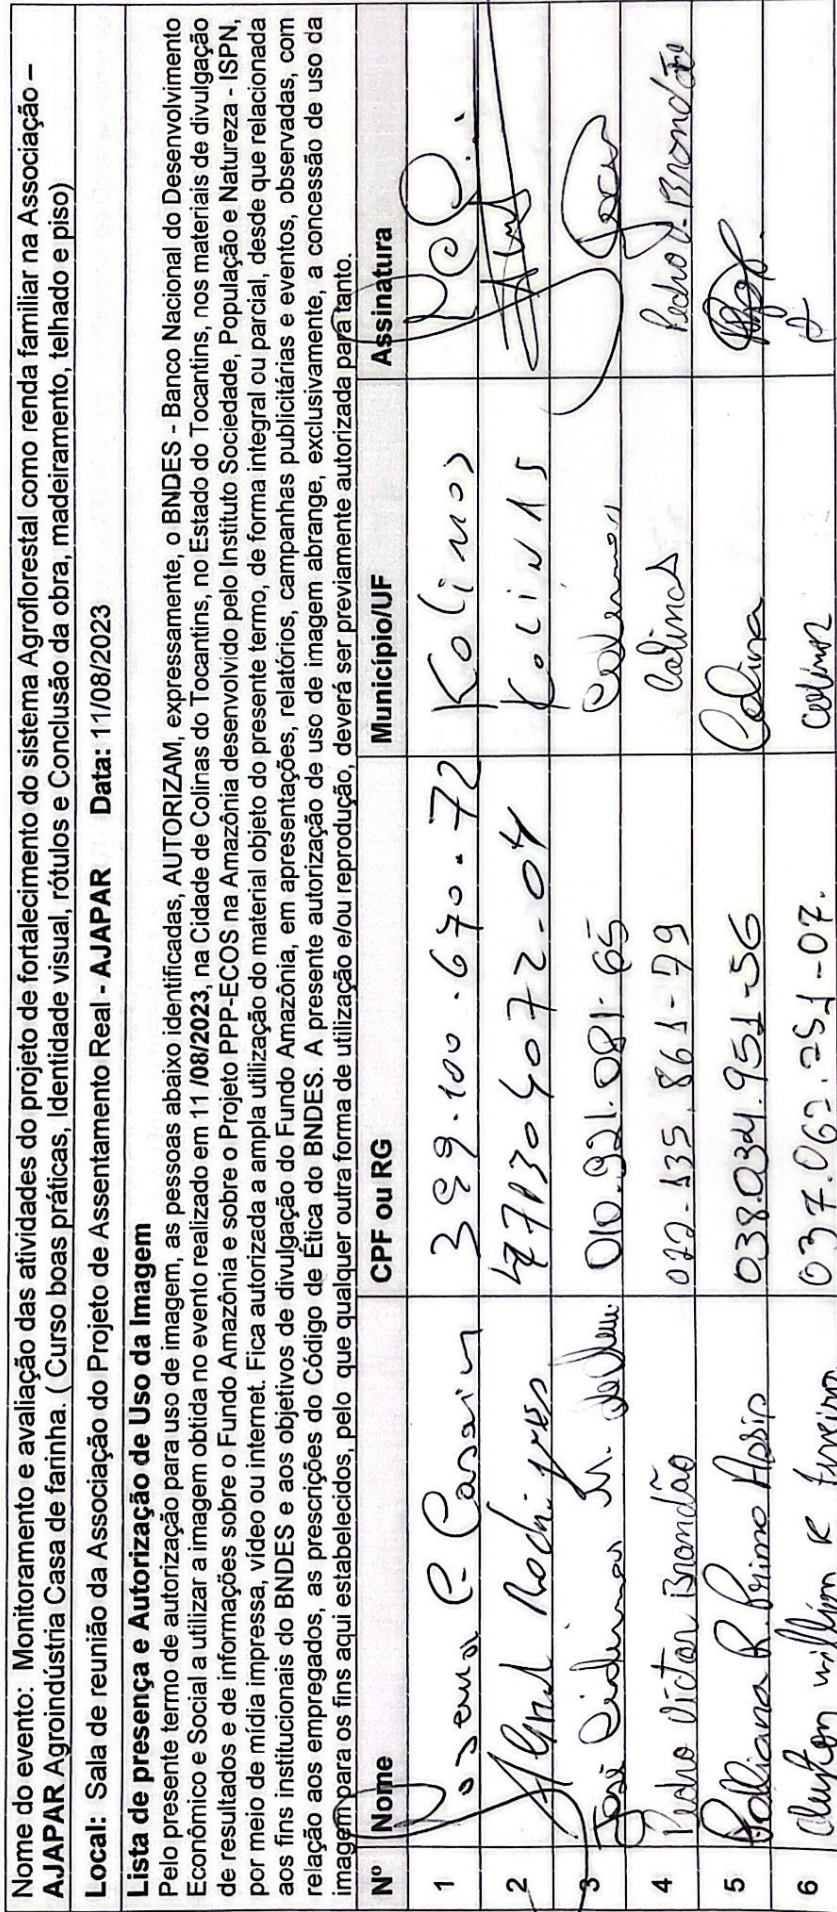 Nome do evento: Monitoramento e avaliação das atividades do projeto de fortalecimento do sistema Agroflorestal como renda familiar na Associação –
AJAPAR Agroindústria Casa de farinha. ( Curso boas práticas, Identidade visual, rótulos e Conclusão da obra, madeiramento, telhado e piso)
Local: Sala de reunião da Associação do Projeto de Assentamento Real - AJAPAR Data: 11/08/2023
Lista de presença e Autorização de Uso da Imagem
Pelo presente termo de autorização para uso de imagem, as pessoas abaixo identificadas, AUTORIZAM, expressamente, o BNDES - Banco Nacional do Desenvolvimento
Econômico e Social a utilizar a imagem obtida no evento realizado em 11 /08/2023, na Cidade de Colinas do Tocantins, no Estado do Tocantins, nos materiais de divulgação
de resultados e de informações sobre o Fundo Amazônia e sobre o Projeto PPP-ECOS na Amazônia desenvolvido pelo Instituto Sociedade, População e Natureza - ISPN,
por meio de mídia impressa, vídeo ou internet. Fica autorizada a ampla utilização do material objeto do presente termo, de forma integral ou parcial, desde que relacionada
aos fins institucionais do BNDES e aos objetivos de divulgação do Fundo Amazônia, em apresentações, relatórios, campanhas publicitárias e eventos, observadas, com
relação aos empregados, as prescrições do Código de Ética do BNDES. A presente autorização de uso de imagem abrange, exclusivamente, a concessão de uso da
imagem para os fins aqui estabelecidos, pelo que qualquer outra forma de utilização e/ou reprodução, deverá ser previamente autorizada para tanto.
Nº Nome CPF ou RG Município/UF Assinatura
1 399.100.670-72 Kolinos
2 Rodrigues Kolinas
3 José M. 010.921.081-65
4 Pedro Victor Brandão 022.135.861-79 Colinas Pedro V. Brandão
5 Polliana R. Primo 038.034.951-56 Colina
6 willian R 037.062.251-07.